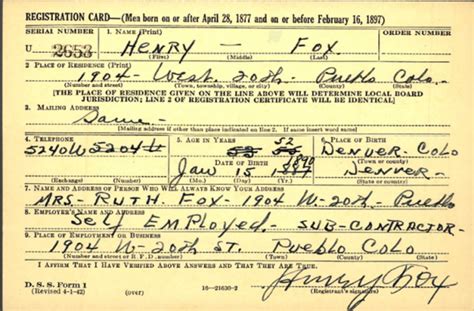 REGISTRATION CARD—(Men born on or after April 28, 1877 and on or before February 16, 1897)
SERIAL NUMBER 1. NAME (Print) ORDER NUMBER
U 2653 HENRY — FOX
(First) (Middle) (Last)
2. PLACE OF RESIDENCE (Print)
1904 - West. 20th - Pueblo Colo
(Number and street) (Town, township, village, or city) (County) (State)
[THE PLACE OF RESIDENCE GIVEN ON THE LINE ABOVE WILL DETERMINE LOCAL BOARD
JURISDICTION; LINE 2 OF REGISTRATION CERTIFICATE WILL BE IDENTICAL]
3. MAILING ADDRESS
Same -
(Mailing address if other than place indicated on line 2. If same insert word same)
4. TELEPHONE 5. AGE IN YEARS 6. PLACE OF BIRTH
5240W 5204W 52 DENVER - COLO
DATE OF BIRTH (Town or county)
JAN 15 1890 DENVER -
(Exchange) (Number) (Mo.) (Day) (Yr.) (State or country)
7. NAME AND ADDRESS OF PERSON WHO WILL ALWAYS KNOW YOUR ADDRESS
MRS - RUTH. FOX - 1904 W - 20th - Pueblo
8. EMPLOYER'S NAME AND ADDRESS
Self EMPLOYED - SUB-CONTRACTOR -
9. PLACE OF EMPLOYMENT OR BUSINESS
1904 - W - 20th ST. Pueblo COLO
(Number and street or R. F. D. number) (Town) (County) (State)
I AFFIRM THAT I HAVE VERIFIED ABOVE ANSWERS AND THAT THEY ARE TRUE.
D. S. S. Form 1 Henry Fox
(Revised 4-1-42) (over) 16—21630-2 (Registrant's signature)